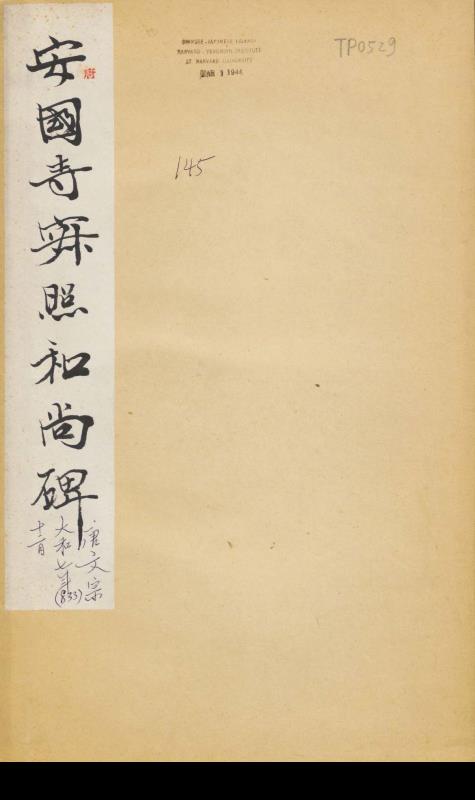 安國寺寂照和尚碑
唐
唐文宗
大和七年(833)
十二月
CHINESE-JAPANESE LIBRARY
HARVARD-YENCHING INSTITUTE
AT HARVARD UNIVERSITY
1 1944
TP0529
145